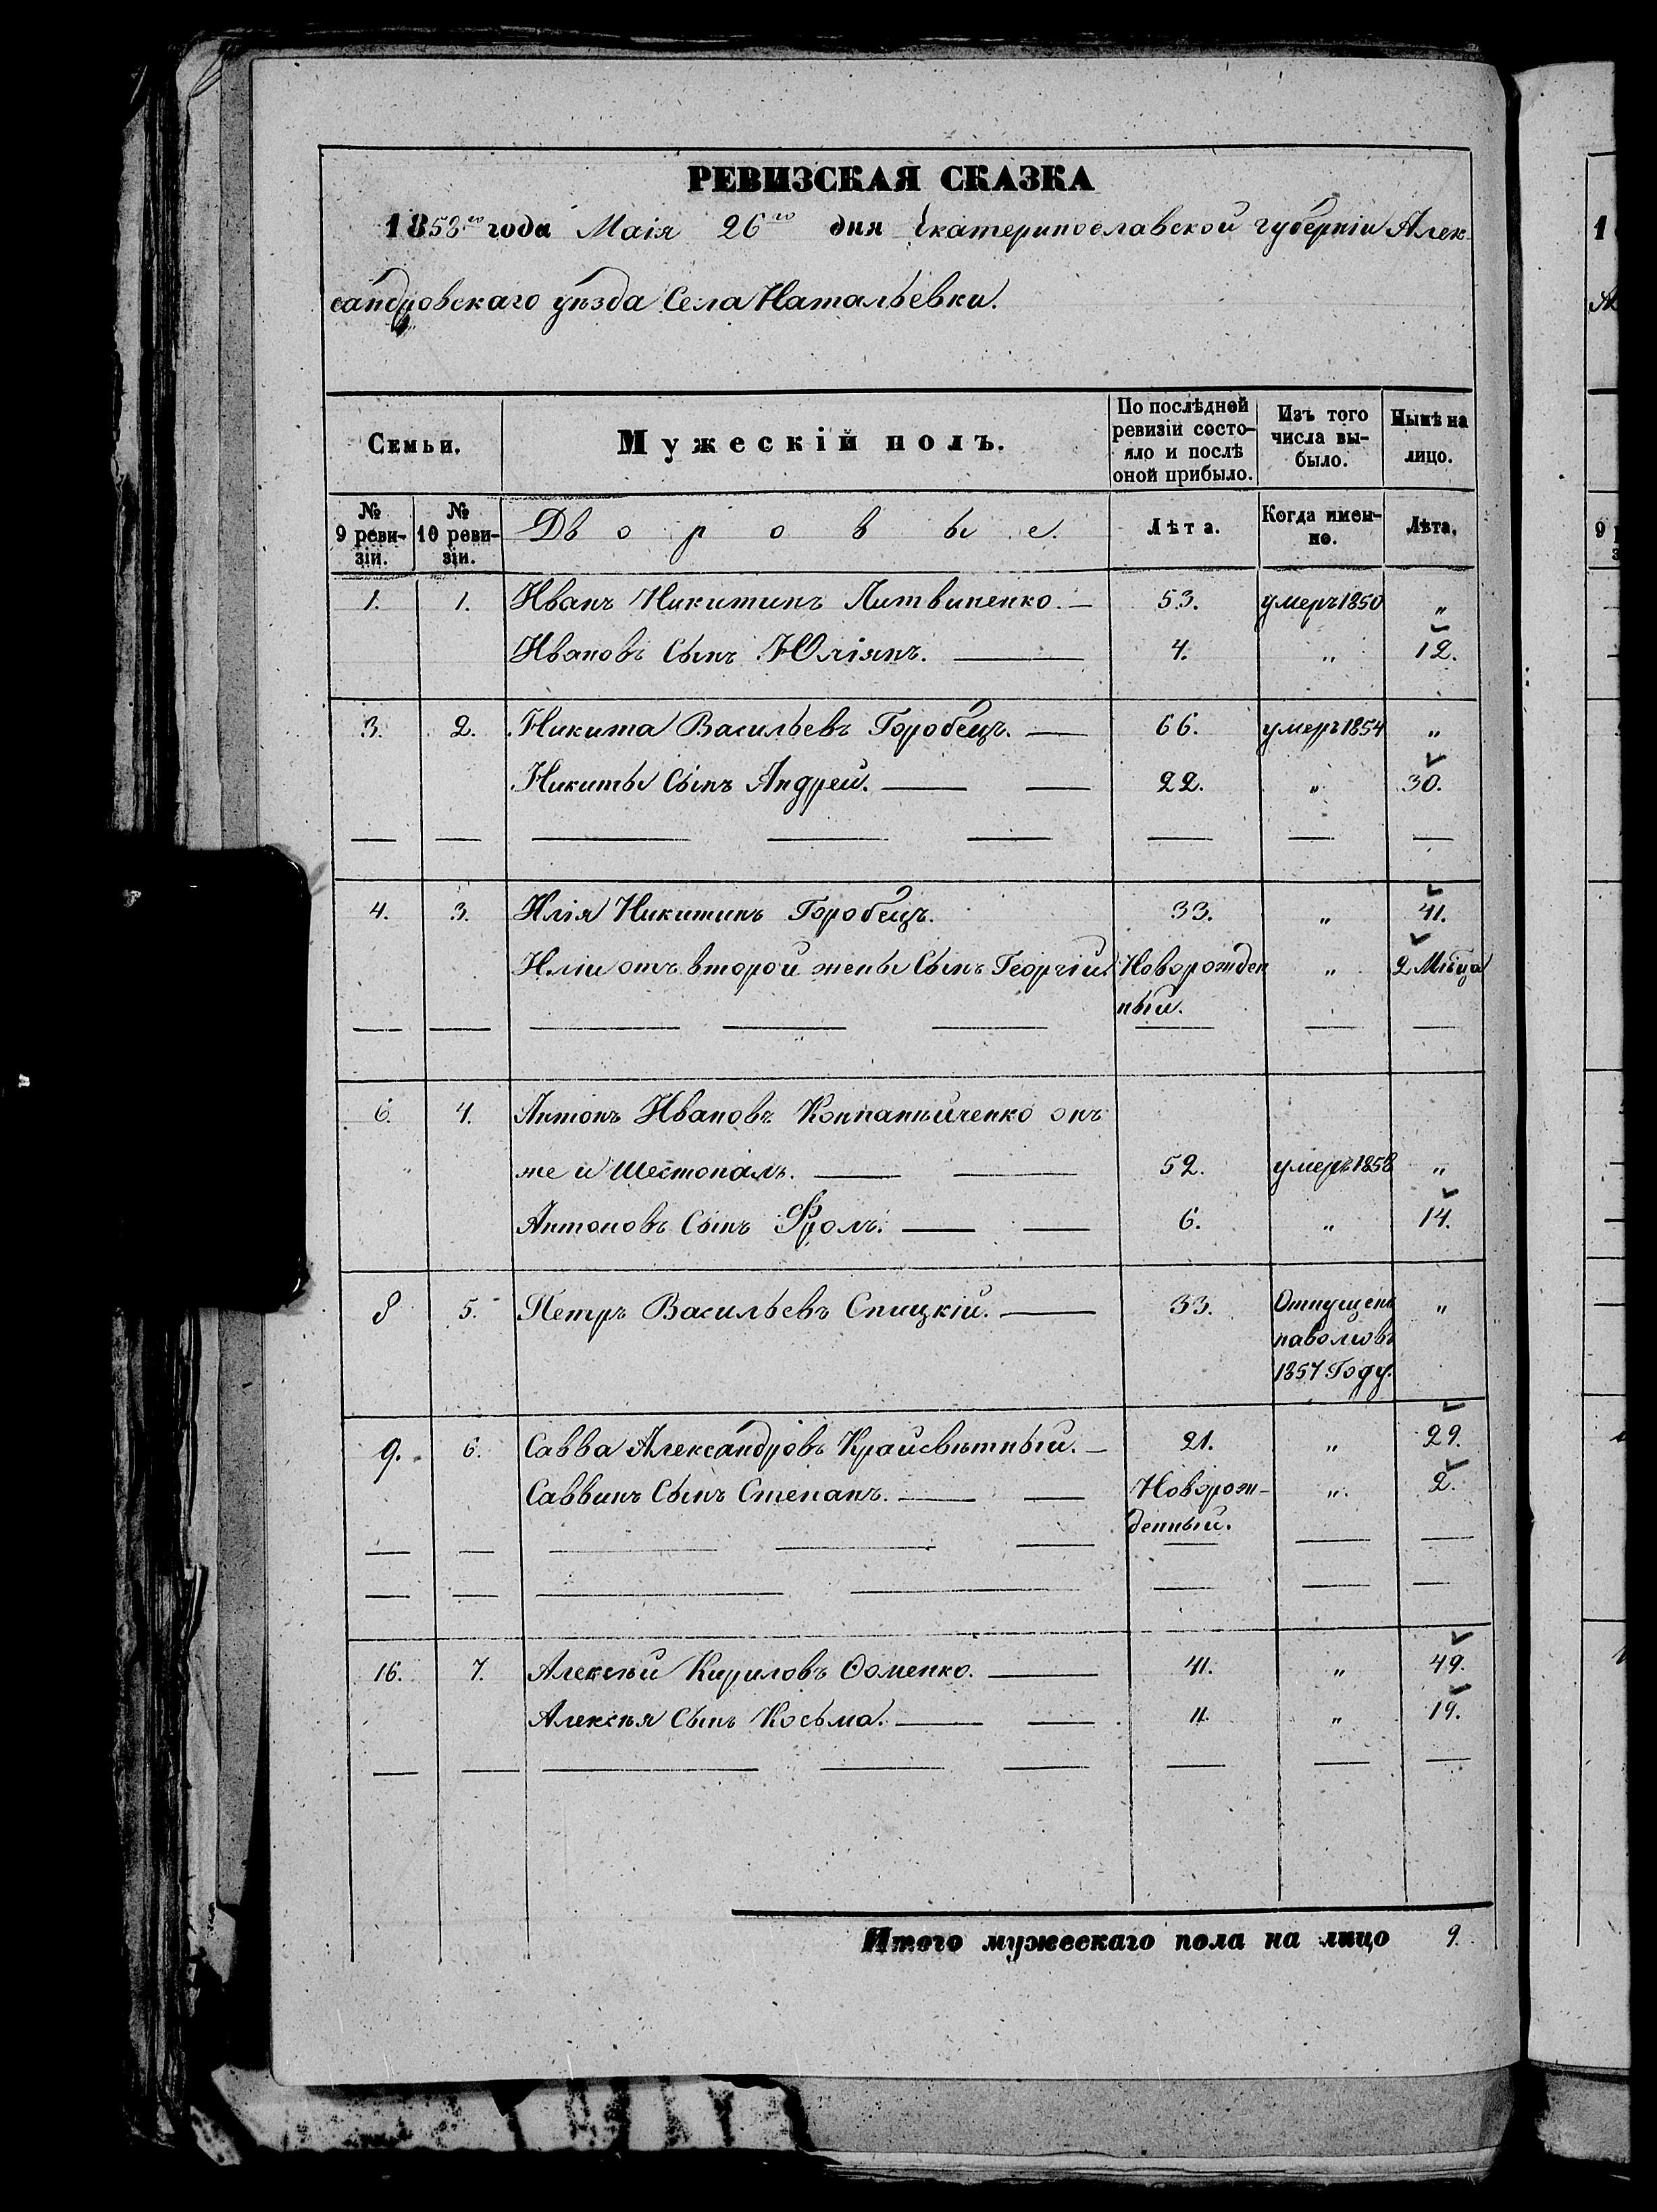 РЕВИЗСКАЯ СКАЗКА
1858го года Маія 26го дня Екатеринославской губерніи Алек
сандровскаго уѣзда Села Натальевки.
Семьи.
Мужескій полъ.
По послѣдней ревизіи состояло и послѣ оной прибыло.
Изъ того числа выбыло.
Нынѣ на лицо.
№ 9 ревизіи.
№ 10 ревизіи.
Дворовые.
Лѣта.
Когда именно.
Лѣта.
1. 1. Иванъ Никитинъ Литвиненко. — 53. умеръ 1850 „
Ивановъ Сынъ Юліянъ. — 4. „ 12.
3. 2. Никита Васильевъ Горобецъ. — 66. умеръ 1854 „
Никиты Сынъ Андрей. — — 22. „ 30.
4. 3. Илія Никитинъ Горобецъ. 33. „ 41.
Иліи отъ второй жены Сынъ Георгій. Новорожден „ 2 Мѣсца
ный.
6. 4. Антонъ Ивановъ Компанѣйченко онъ
же и Шестопалъ. — — 52. умеръ 1858 „
Антоновъ Сынъ Фролъ. — — 6. „ 14.
8 5. Петръ Васильевъ Спицкій. — 33. Отпущенъ „
наволю въ
1857 Году.
9. 6. Савва Александровъ Крайсвѣтный. — 21. „ 29.
Саввинъ Сынъ Степанъ. — — Новорож- „ 2.
денный.
16. 7. Алексѣй Кириловъ Ѳоменко. — 41. „ 49.
Алексѣя Сынъ Косьма. — — 11. „ 19.
Итого мужескаго пола на лицо 9.